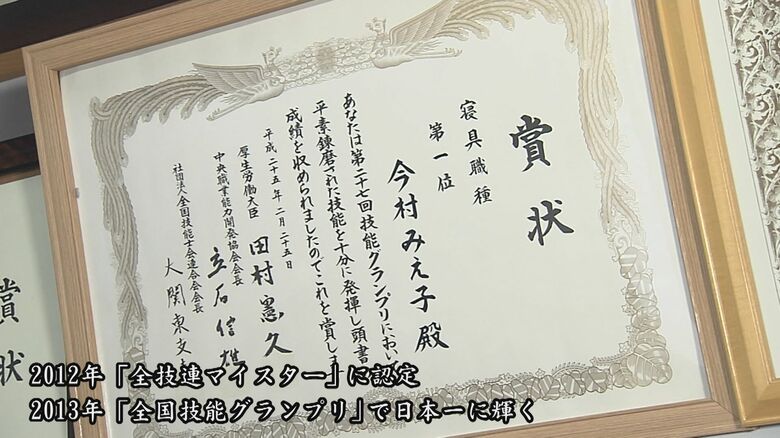 賞状
寝具職種
第一位
今村みえ子殿
あなたは第二十七回技能グランプリにおい
平素錬磨された技能を十分に発揮し頭書
成績を収められましたのでこれを賞しま
平成二十五年二月二十五日
厚生労働大臣 田村憲久
中央職業能力開発協会会長 立石信雄
社団法人全国技能士会連合会会長 大関東支
賞状
2012年「全技連マイスター」に認定
2013年「全国技能グランプリ」で日本一に輝く